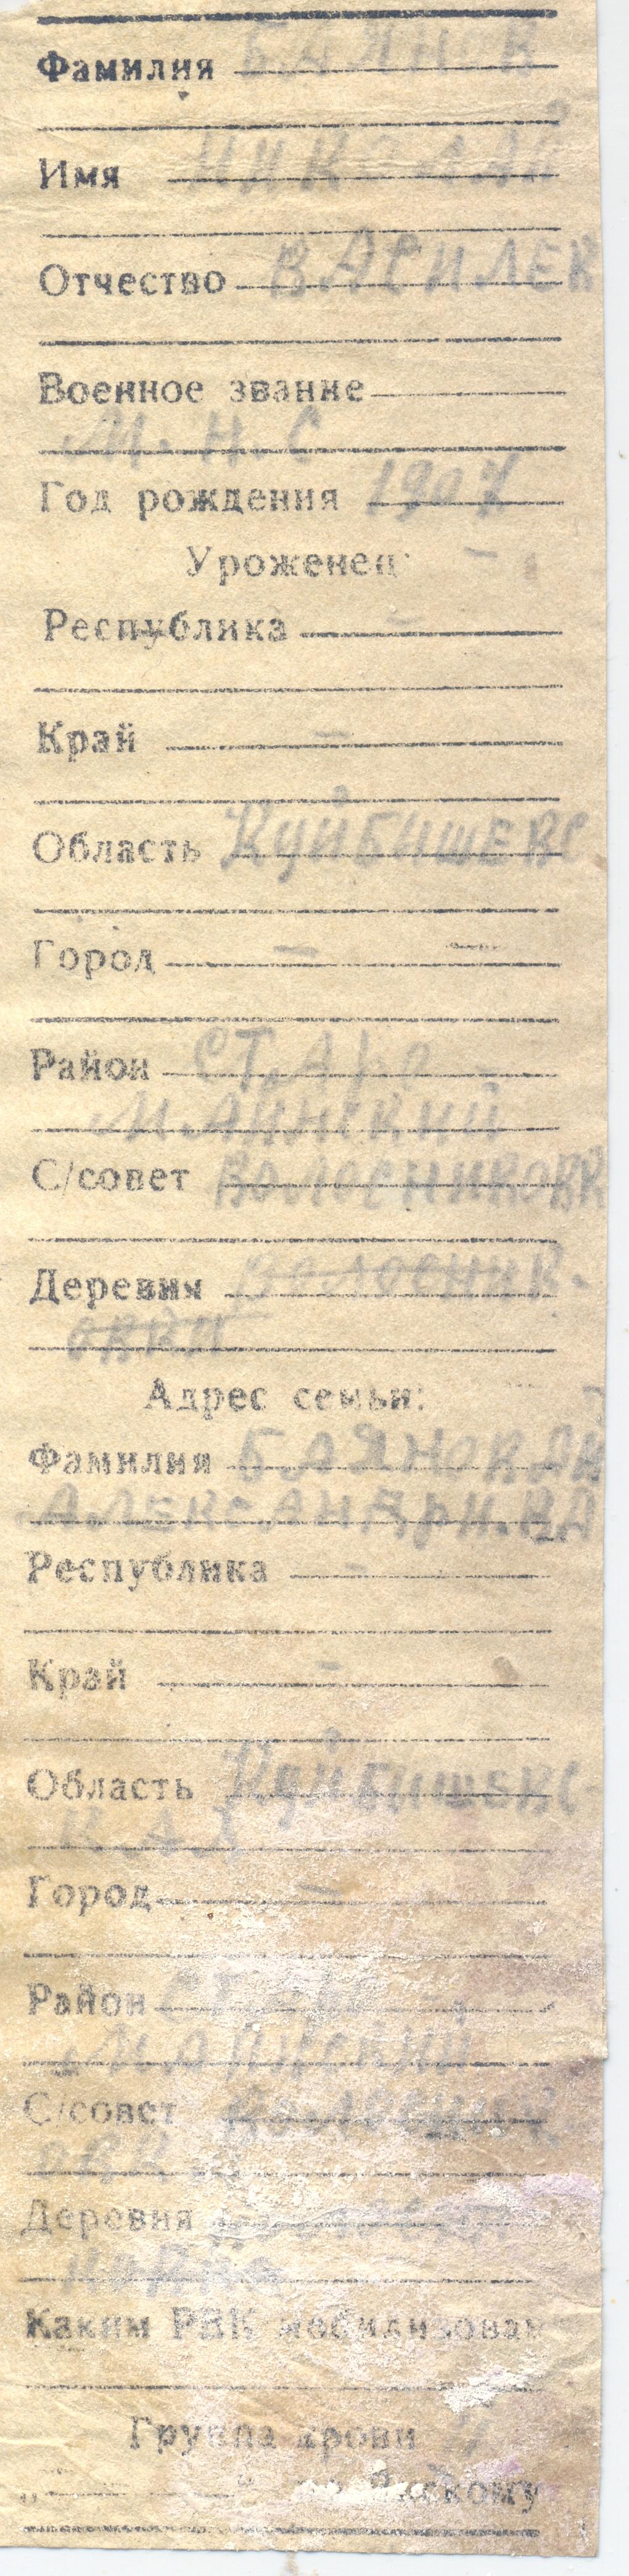 Фамилия БАЯНОВ
Имя НИКОЛАЙ
Отчество ВАСИЛЕВ
Военное звание
М.Н.С
Год рождения 1907
Уроженец: —
Республика —
Край —
Область КУЙБИШЕВС
Город —
Район СТАРО
МАИНСКИЙ
С/совет КОЛОСНИКОВК
Деревня КОЛОСНИК-
ОВКИ
Адрес семьи:
Фамилия БАЯНОВАЙ
АЛЕКСАНДРИ.ВА
Республика —
Край —
Область КУЙБИШЕВС
КАЯ
Город —
Район СТАРО
МАИНСКИЙ
С/совет
Деревня
Каким РВК мобилизован
Группа крови